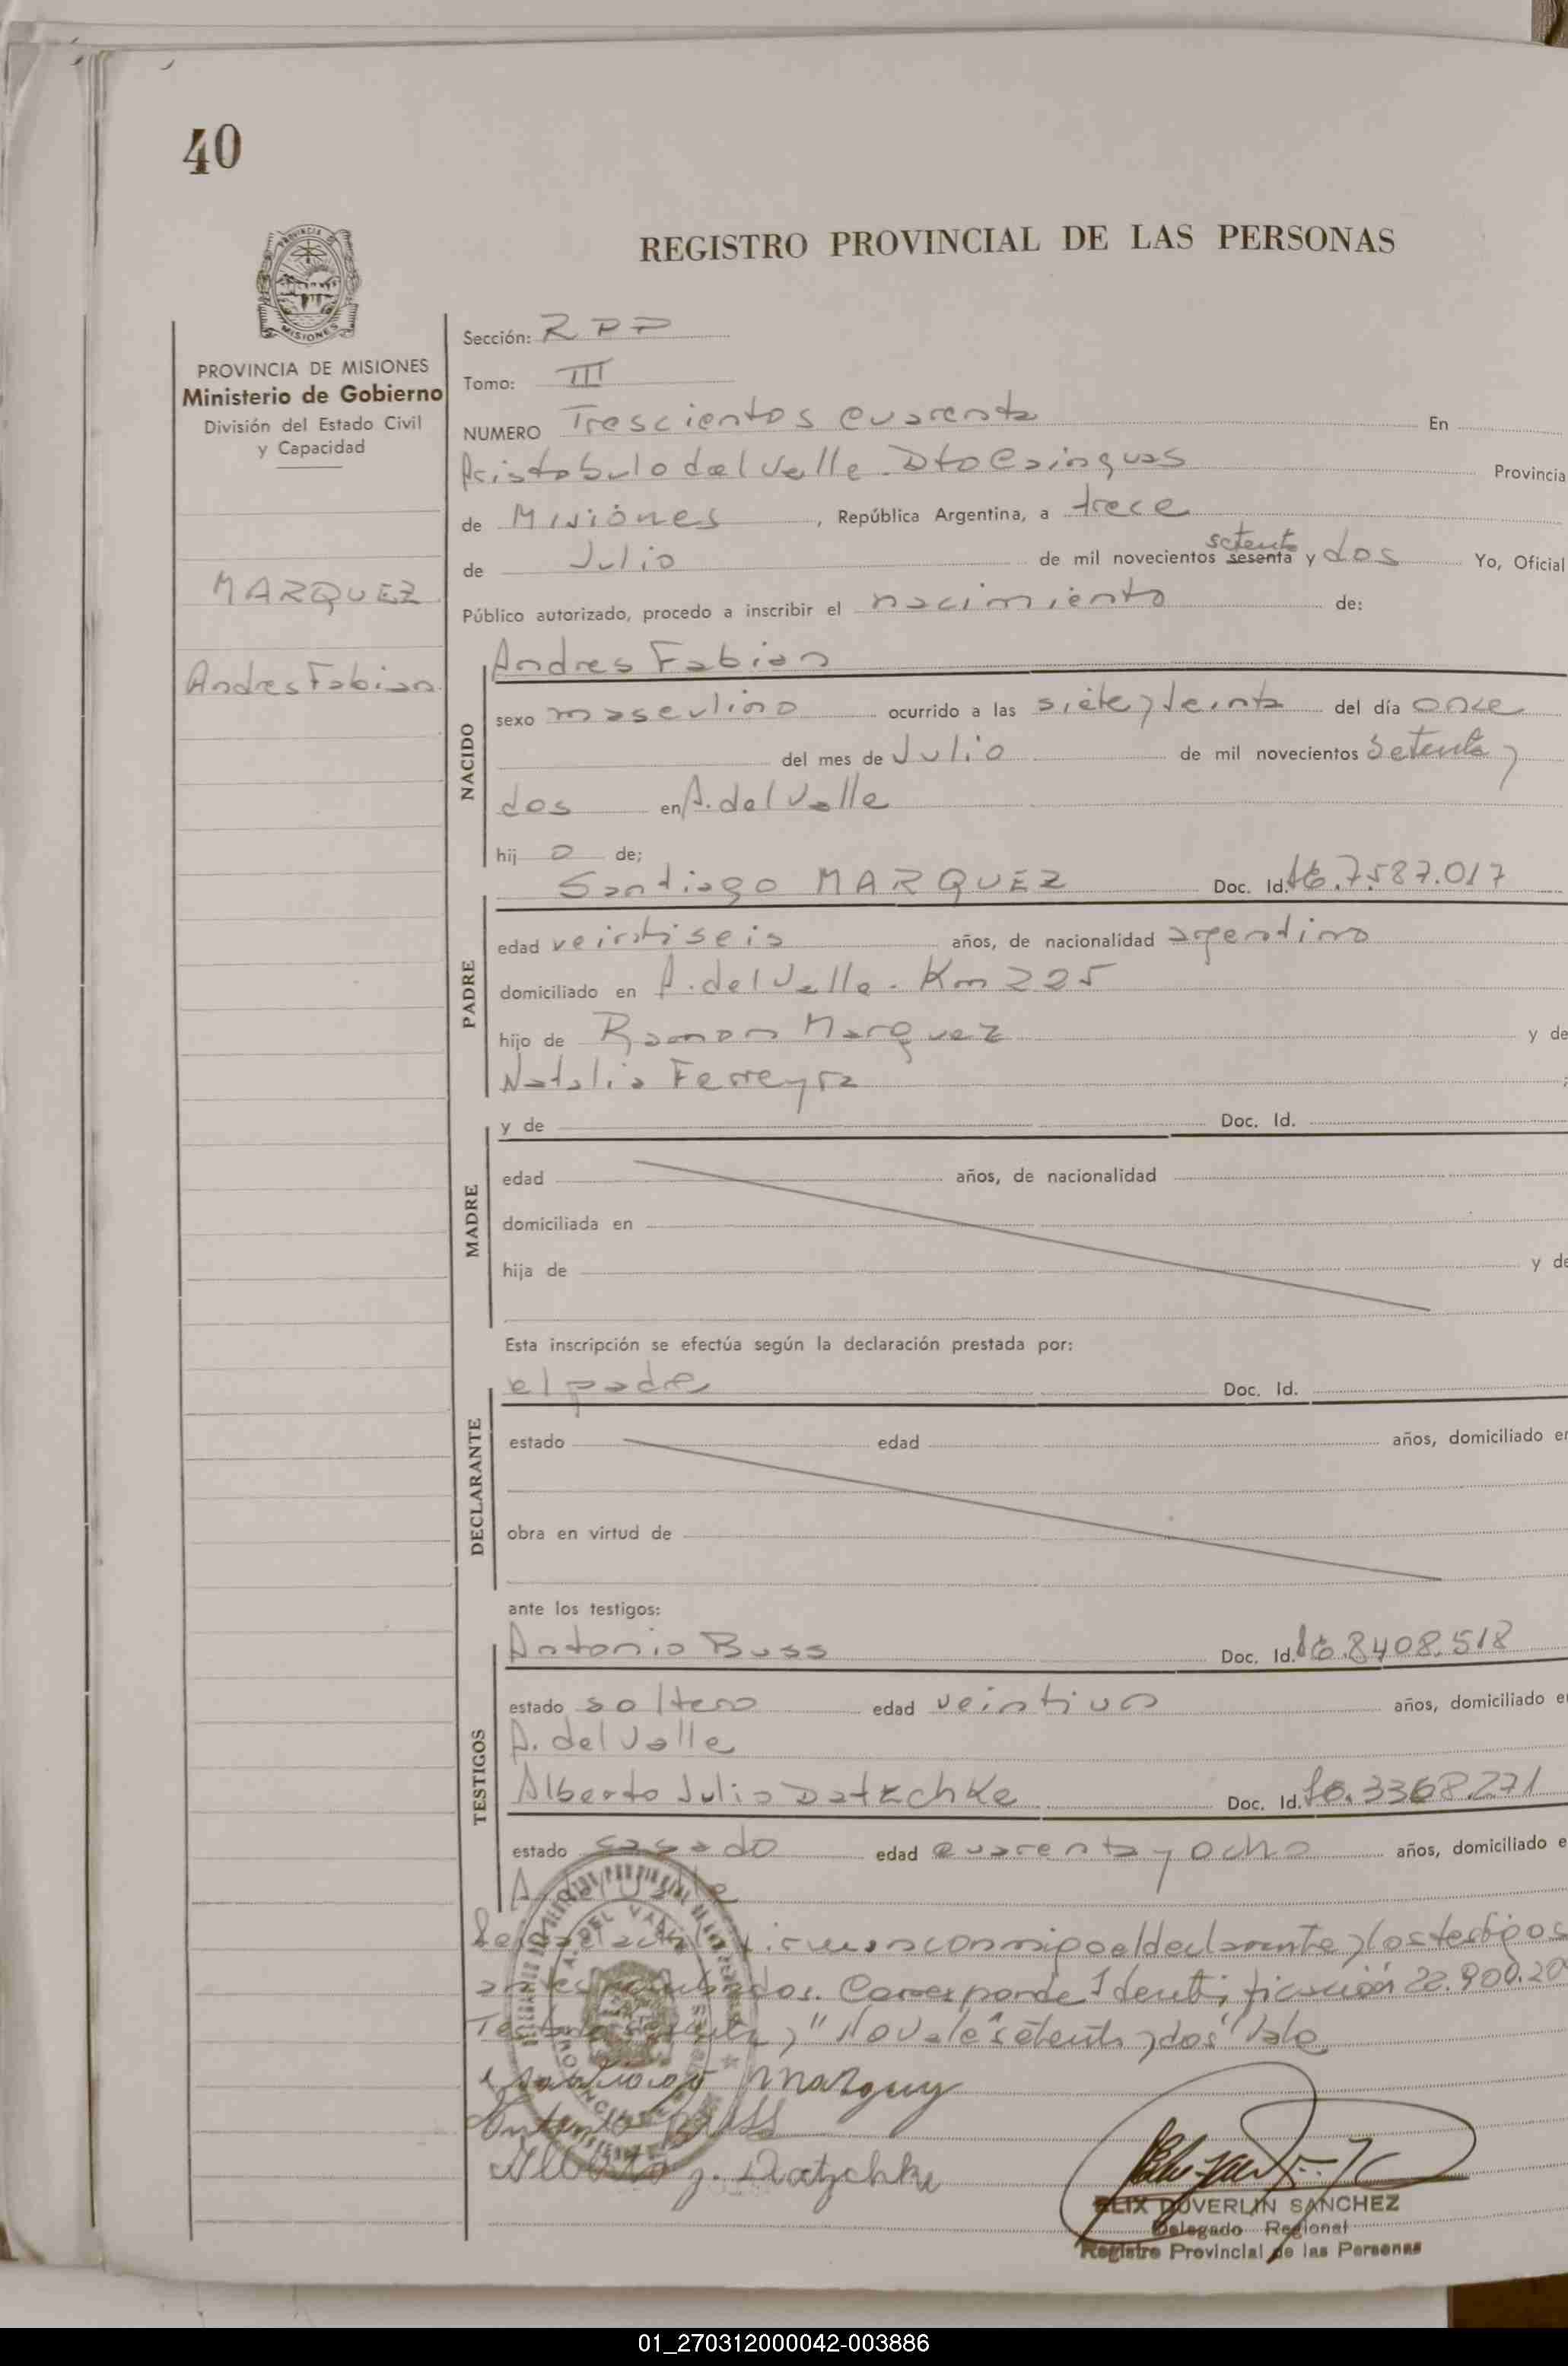 40
REGISTRO PROVINCIAL DE LAS PERSONAS
PROVINCIA
MISIONES
PROVINCIA DE MISIONES
Ministerio de Gobierno
División del Estado Civil
y Capacidad
MARQUEZ
Andres Fabian
Sección: RPP
Tomo: III
NUMERO Trescientos cuarenta En
Aristobulo del Valle - Dto Cainguas Provincia
de Misiones, República Argentina, a trece
de Julio de mil novecientos setenta sesenta y dos Yo, Oficial
Público autorizado, procedo a inscribir el nacimiento de:
NACIDO
Andres Fabian
sexo masculino ocurrido a las siete y treinta del día once
del mes de Julio de mil novecientos setenta y
dos en A. del Valle
hijo de;
PADRE
Santiago MARQUEZ Doc. Id. 7.587.017
edad veintiseis años, de nacionalidad argentino
domiciliado en A. del Valle - Km 225
hijo de Ramon Marquez y de
Natalia Ferreyra
MADRE
y de Doc. Id.
edad años, de nacionalidad
domiciliada en
hija de y de
Esta inscripción se efectúa según la declaración prestada por:
DECLARANTE
el padre Doc. Id.
estado edad años, domiciliado en
obra en virtud de
ante los testigos:
TESTIGOS
Antonio Buss Doc. Id. 8408.518
estado soltero edad veintiun años, domiciliado en
A. del Valle
Alberto Julio Datzchke Doc. Id. 3368.271
estado casado edad cuarenta y ocho años, domiciliado e
A. del Valle
firman conmigo el declarante y los testigos
Corresponde Identificación 22.900.20
y" No vale "setenta y dos" Vale
Santiago Marquez
Antonio Buss
Alberto J. Datzchke
FELIX DUVERLIN SANCHEZ
Delegado Regional
Registro Provincial de las Personas
01_270312000042-003886